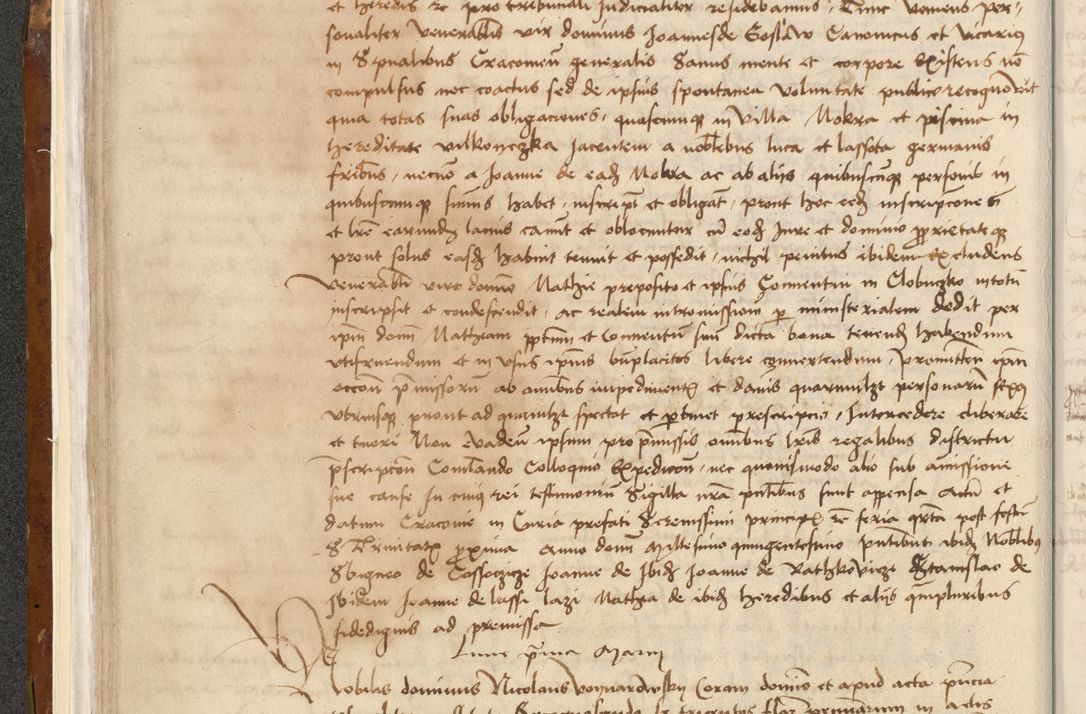 et heredis etc pro tribunali Iudicialiter residebamus, Tunc veniens per-
sonaliter venerabilis vir dominus Joannes de Goslaw Canonicus et vicariq
in Spualibus Cracovien generalis Sanus mente et corpore Existens no
compulsus nec coactus sed de ipsius spontanea voluntate publice recognovit
quia totas suas obligaciones, quascumque in villa Mokra et piscina in
hereditate vilkoneczka Jacentem a nobilebus luca et lassota germanis
fribus, necno a Joanne de ead Mokra ac ab aliis quibuscunque personis in
quibuscumque sumis habet, inscript et obligat, prout hoc eed inscripcones
et lre earund lacius canut et obloquutur cu eod Jure et dominio prietateque
prout solus easd habuit tenuit et possedit, nichil penitus ibidem excludens
venerabli viro domio Mathie preposito et ipsius Conventui in Clobuczko in totu
inscripsit et condescendit, ac realem intromissione p ministerialem dedit per
ipm dom Mathiam pptum et Conventu suu dicta bona tenend habendum
utifruendum et in usus ipius bnplacitos libere convertendum, Promitten ipm
occon pmissoru ab omibus impediment et damis quarumlzt personaru sexq
utriusque prout ad quemlzt spectat et ptinet prescripcio, Intercedere liberare
et tueri Non evaden ipsum pro pmissis omibus lris regalibus districtu
pscripcon Comendo Colloquio Expedicon, nec quovismodo alio sub amissione
sue cause In cuiq rei testimoniu Sigilla nra pntibus sunt appensa Actu et
datum Cracovie in Curia prefati Serenissimi principis re feria qrta post festu
S Trinitatis pxima Anno dom Millesimo quingentesimo pntibus ibid Noblibus
Sbigneo de Joanne de Ibid Joanne de Rathkoviczi Stanislao de
Ibidem Joanne de lassi lazi Mathia de ibid heredibus et aliis qmpluribus
fidedignis ad premissa
Lune pma Marcii
Nobilis dominus Nicolaus voynarowsky Coram domio et apud acta pncia